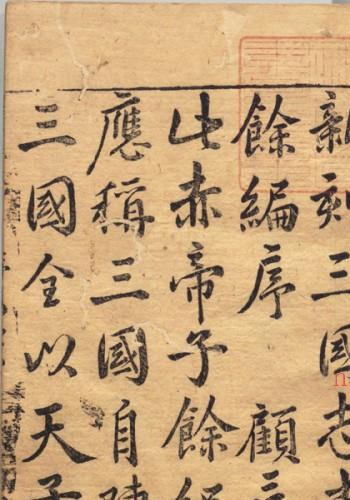 新刻三國志
餘編序 顧三
此赤帝子餘編
應稱三國自陳
三國全以天子